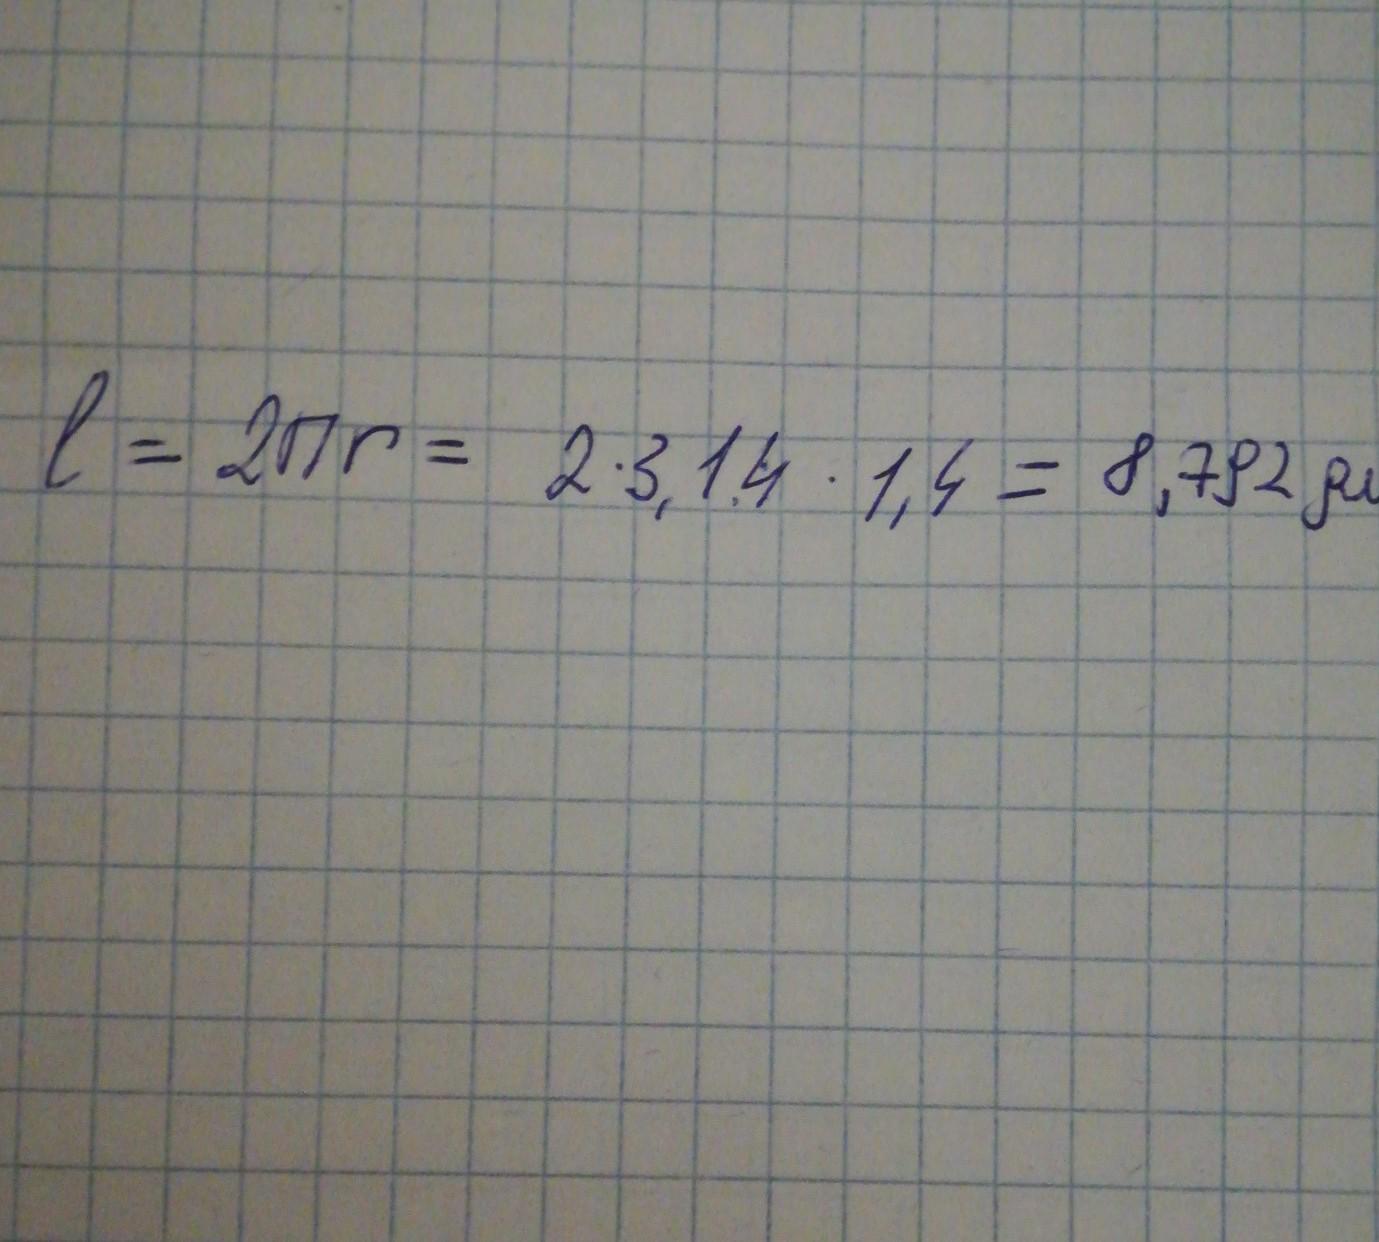 l = 2πr = 2·3,14 · 1,4 = 8,792 дм